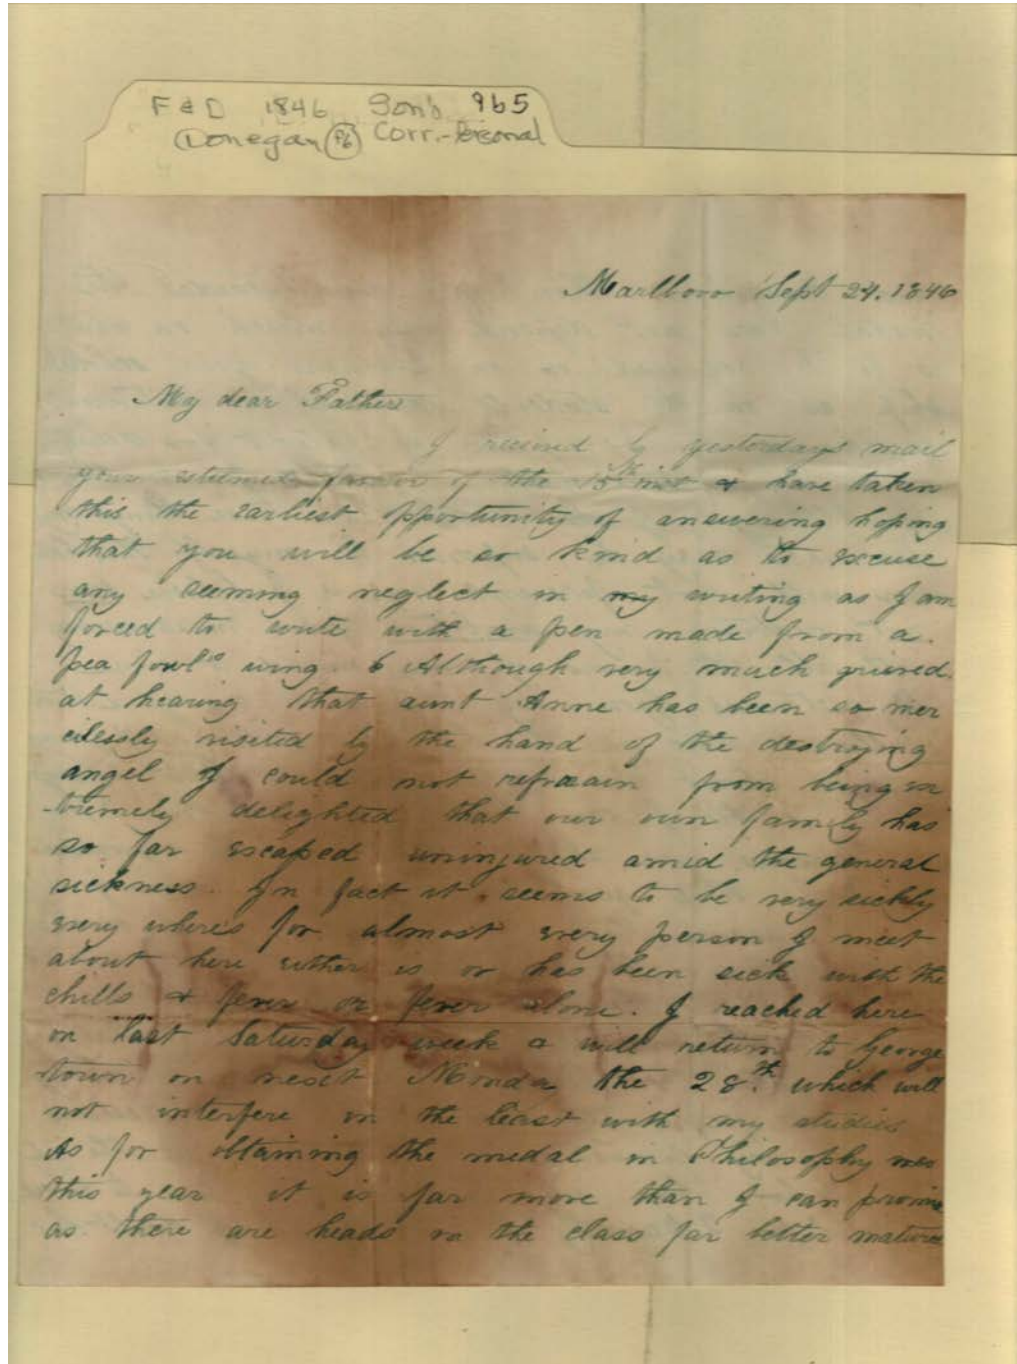 F & D 1846 Son's 965
Donegan P6 Corr.-Personal
Marlboro Sept 24. 1846
My dear Father
I recieved by yesterdays mail
your esteemed favour of the 15th inst & have taken
this the earliest opportunity of answering hoping
that you will be so kind as to excuse
any seeming neglect in my writing as I am
forced to write with a pen made from a
pea fowl's wing. Although very much grieved
at hearing that aunt Anne has been so mer
cilessly visited by the hand of the destroying
angel I could not refrain from being ex
-tremely delighted that our own family has
so far escaped uninjured amid the general
sickness. In fact it seems to be very sickly
every where for almost every person I meet
about here either is or has been sick with the
chills & fever or fever alone. I reached here
on last Saturday week & will return to George
town on next Monda the 28th. which will
not interfere in the least with my studies
As for obtaining the medal in Philosophy
this year it is far more than I can promise
as there are heads in the class far better matured